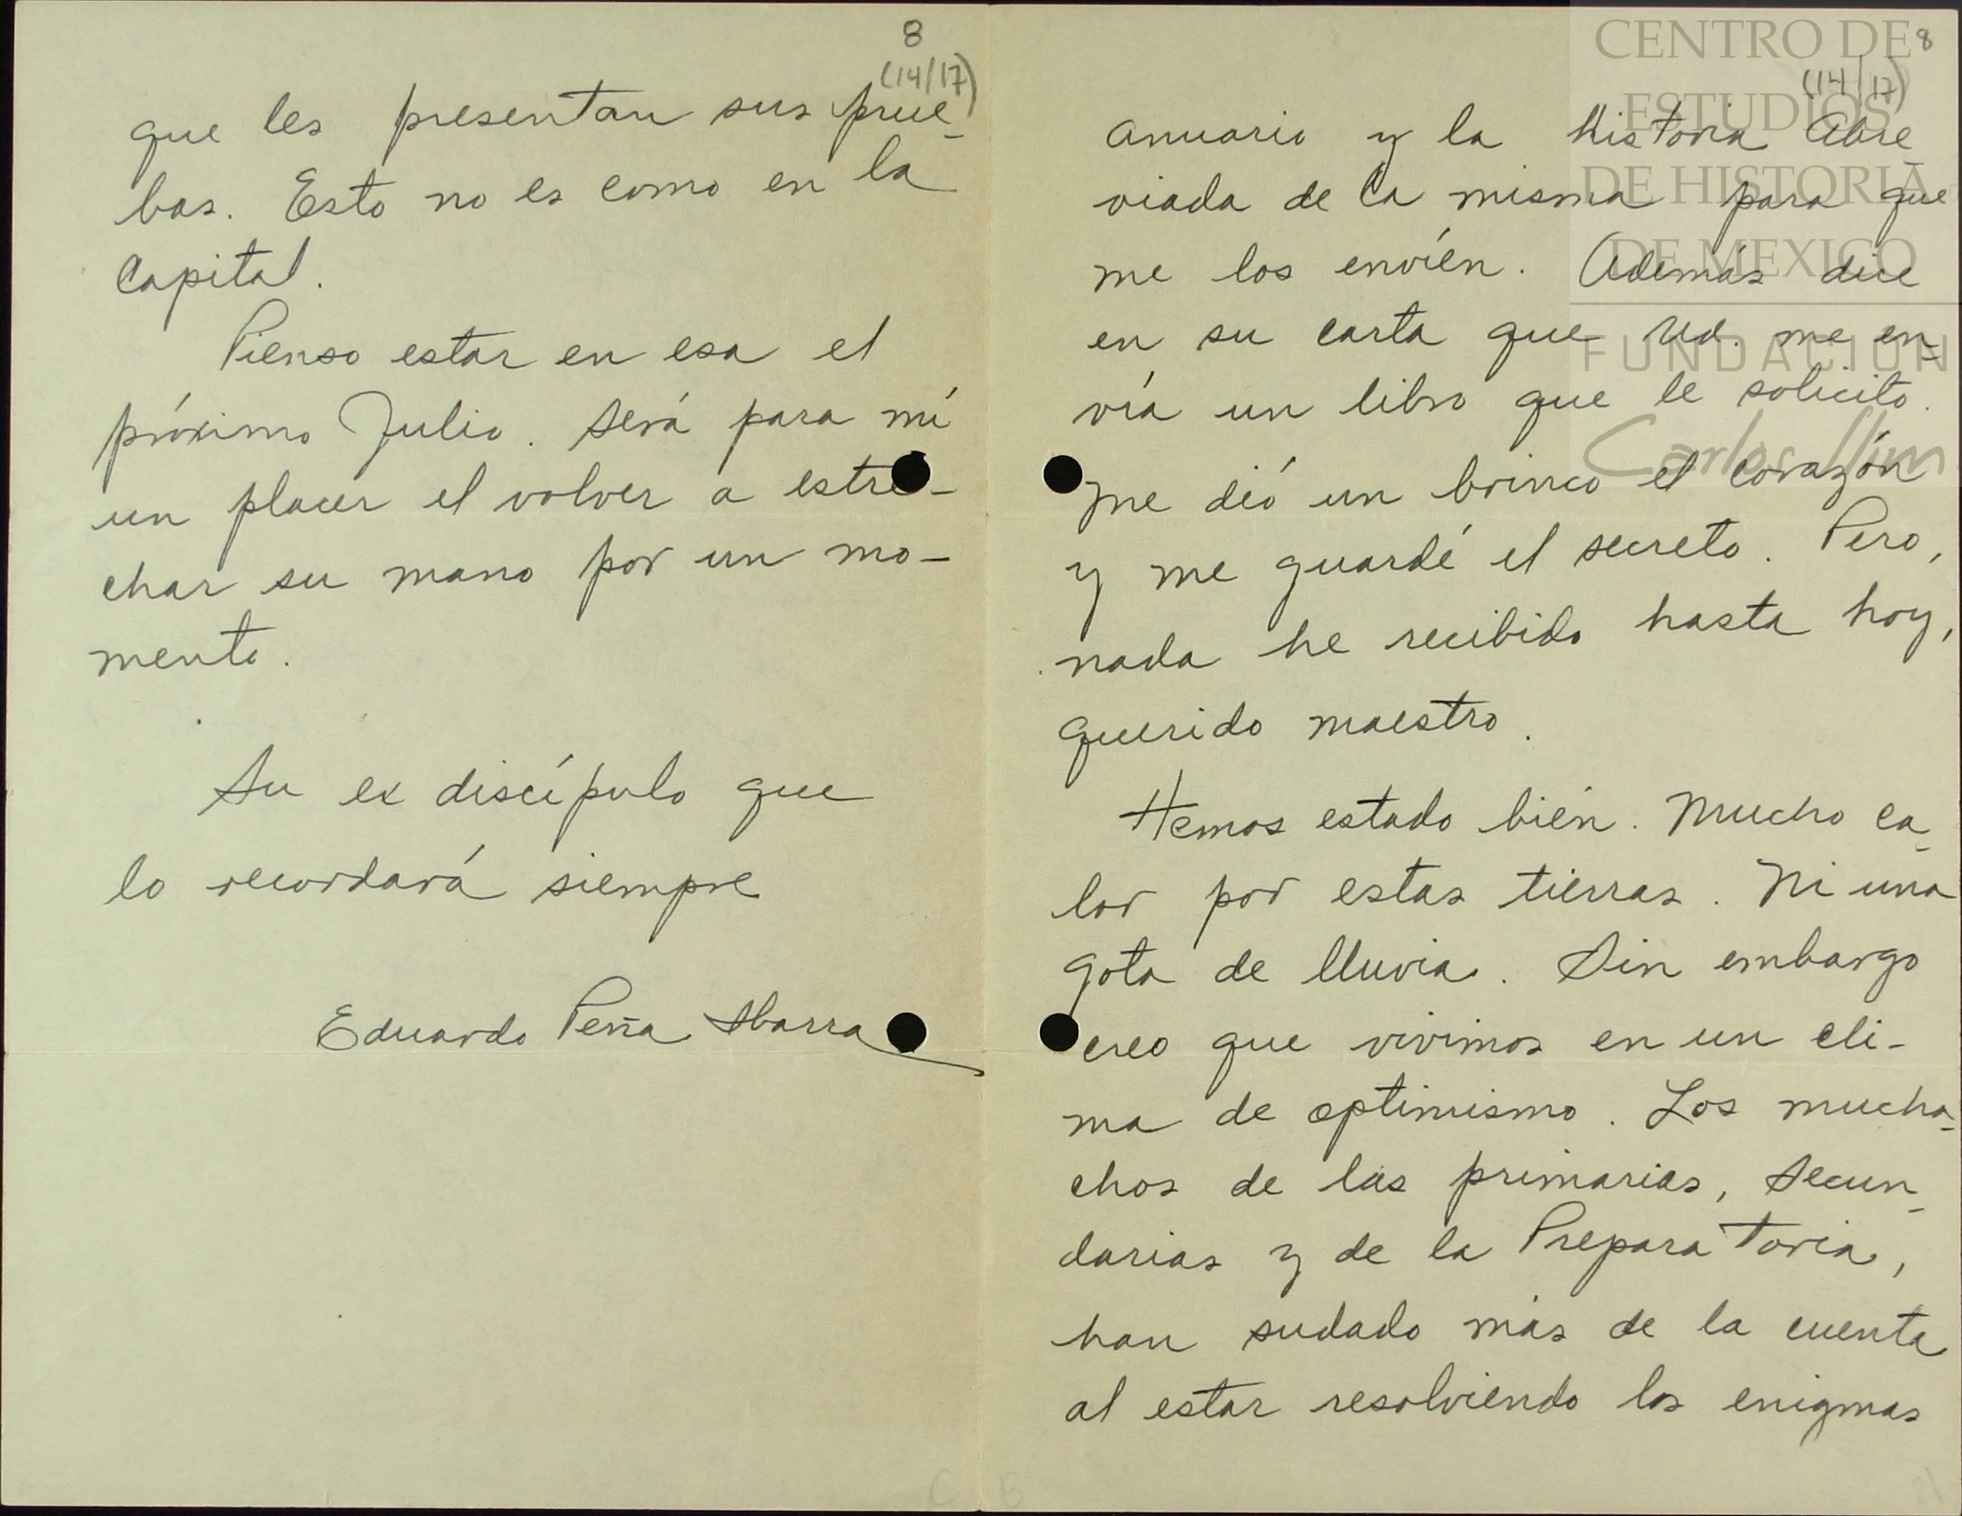 8
(14/17)
que les presentan sus prue-
bas. Esto no es como en la
Capital.
Pienso estar en esa el
próximo Julio. Será para mí
un placer el volver a estre-
char su mano por un mo-
mento.
Su ex discípulo que
lo recordará siempre
Eduardo Peña Ibarra
8
(14/17)
anuario y la Historia Abre
viada de la misma para que
me los envíen. Además dice
en su carta que Ud. me en-
vía un libro que le solicito.
Me dió un brinco el corazón
y me guardé el secreto. Pero,
nada he recibido hasta hoy,
querido maestro.
Hemos estado bién. Mucho ca-
lor por estas tierras. Ni una
gota de lluvia. Sin embargo
creo que vivimos en un cli-
ma de optimismo. Los mucha-
chos de las primarias, Secun-
darias y de la Preparatoria,
han sudado más de la cuenta
al estar resolviendo los enigmas
CENTRO DE
ESTUDIOS
DE HISTORIA
DE MEXICO
FUNDACIÓN
Carlos Slim
C B